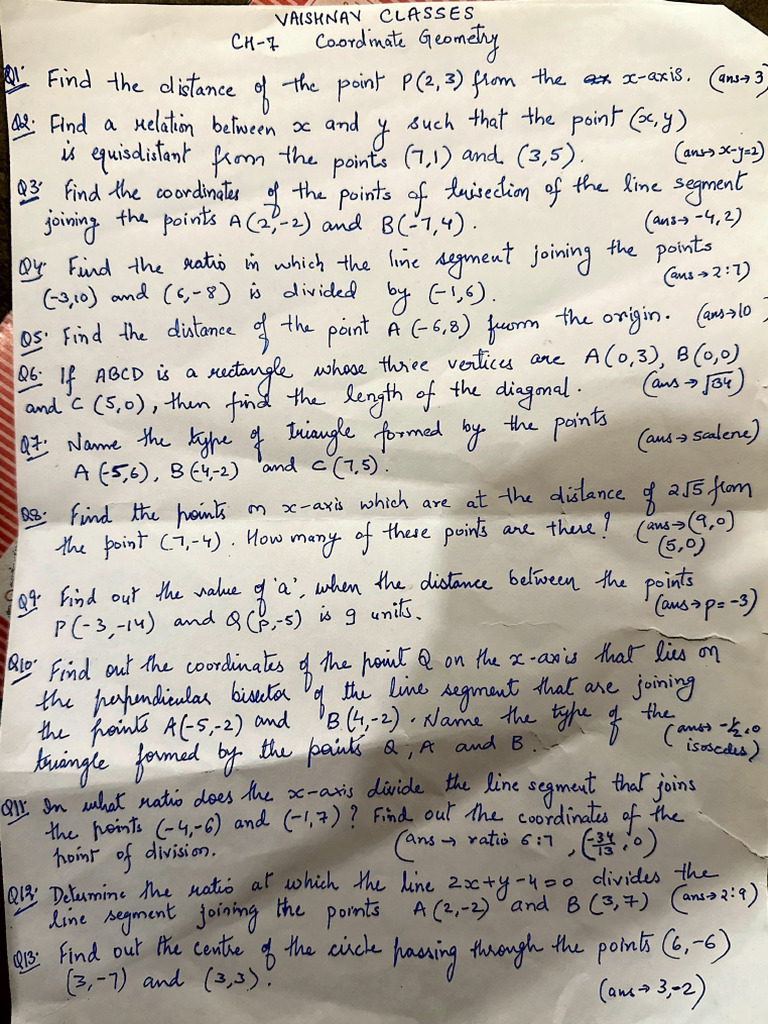 VAISHNAV CLASSES
CH-7 Coordinate Geometry
Q1. Find the distance of the point P(2,3) from the x-axis. (ans→3)
Q2. Find a relation between x and y such that the point (x,y)
is equisdistant from the points (7,1) and (3,5). (ans→ x-y=2)
Q3. Find the coordinates of the points of trisection of the line segment
joining the points A(2,-2) and B(-7,4). (ans→ -4,2)
Q4. Find the ratio in which the line segment joining the points
(-3,10) and (6,-8) is divided by (-1,6). (ans→2:7)
Q5. Find the distance of the point A (-6,8) from the origin. (ans→10
Q6. If ABCD is a rectangle whose three vertices are A(0,3), B(0,0)
and C (5,0), then find the length of the diagonal. (ans→ √34)
Q7. Name the type of triangle formed by the points
A (-5,6), B(-4,-2) and C(7,5). (ans→ scalene)
Q8. Find the points on x-axis which are at the distance of 2√5 from
the point (7,-4). How many of these points are there? (ans→(9,0)
(5,0)
Q9. Find out the value of 'a', when the distance between the points
P(-3,-14) and Q(p,-5) is 9 units. (ans→p=-3)
Q10. Find out the coordinates of the point Q on the x-axis that lies on
the perpendicular bisector of the line segment that are joining
the points A(-5,-2) and B(4,-2). Name the type of the
triangle formed by the points Q, A and B. (ans→ -1/2,0
isosceles)
Q11. In what ratio does the x-axis divide the line segment that joins
the points (-4,-6) and (-1,7)? Find out the coordinates of the
point of division. (ans → ratio 6:7, (-34/13, 0)
Q12. Determine the ratio at which the line 2x+y-4=0 divides the
line segment joining the points A(2,-2) and B(3,7) (ans→2:9)
Q13. Find out the centre of the circle passing through the points (6,-6)
(3,-7) and (3,3). (ans→ 3,-2)